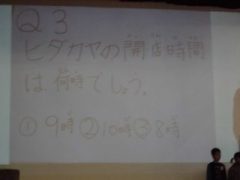 Q3
ヒダカヤの開店時間
は何時でしょう。
①9時②10時③8時